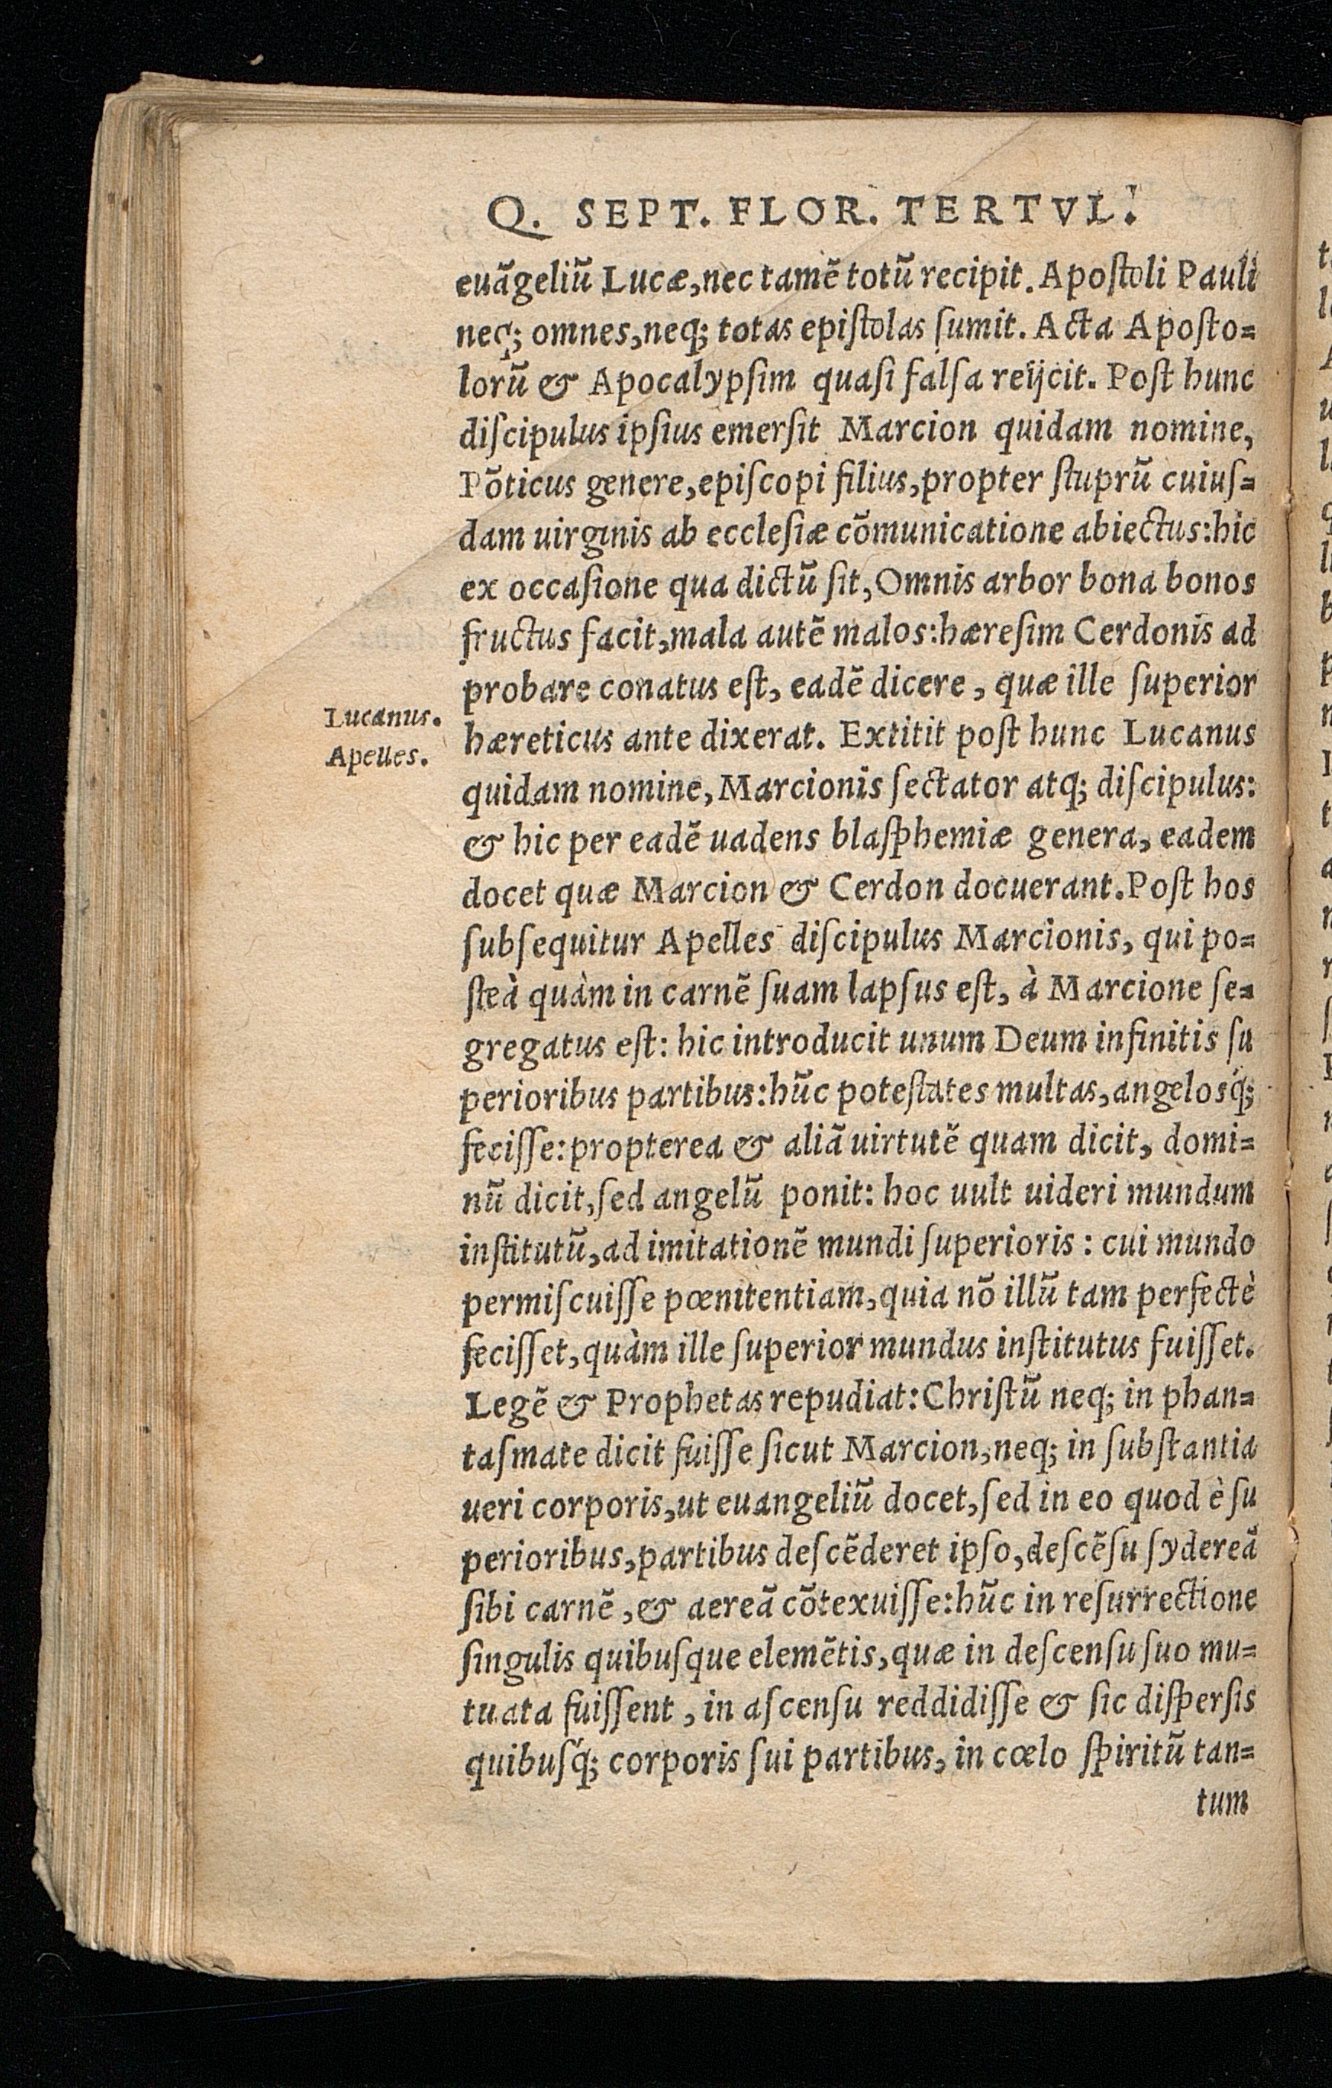 Q. SEPT. FLOR. TERTVL.
euāgeliū Lucæ, nec tamē totū recipit. Apoſtoli Pauli
neq; omnes, neq; totas epiſtolas ſumit. Acta Apoſto=
lorū & Apocalypſim quaſi falſa reijcit. Poſt hunc
diſcipulus ipſius emerſit Marcion quidam nomine,
Pōticus genere, epiſcopi filius, propter ſtuprū cuiuſ=
dam uirginis ab eccleſiæ cōmunicatione abiectus: hic
ex occaſione qua dictū ſit, Omnis arbor bona bonos
fructus facit, mala autē malos: hæreſim Cerdonis ad
probare conatus eſt, eadē dicere, quæ ille ſuperior
Lucanus.
Apelles.
hæreticus ante dixerat. Extitit poſt hunc Lucanus
quidam nomine, Marcionis ſectator atq; diſcipulus:
& hic per eadē uadens blaſphemiæ genera, eadem
docet quæ Marcion & Cerdon docuerant. Poſt hos
ſubſequitur Apelles diſcipulus Marcionis, qui po=
ſteà quàm in carnē ſuam lapſus eſt, à Marcione ſe=
gregatus eſt: hic introducit unum Deum infinitis ſu
perioribus partibus: hūc poteſtates multas, angelosq́;
feciſſe: propterea & aliā uirtutē quam dicit, domi=
nū dicit, ſed angelū ponit: hoc uult uideri mundum
inſtitutū, ad imitationē mundi ſuperioris: cui mundo
permiſcuiſſe pœnitentiam, quia nō illū tam perfectè
feciſſet, quàm ille ſuperior mundus inſtitutus fuiſſet.
Legē & Prophetas repudiat: Chriſtū neq; in phan=
taſmate dicit fuiſſe ſicut Marcion, neq; in ſubſtantia
ueri corporis, ut euangeliū docet, ſed in eo quod è ſu
perioribus, partibus deſcēderet ipſo, deſcēſu ſydereā
ſibi carnē, & aereā cōtexuiſſe: hūc in reſurrectione
ſingulis quibuſque elemētis, quæ in deſcenſu ſuo mu=
tuata fuiſſent, in aſcenſu reddidiſſe & ſic diſperſis
quibuſq́; corporis ſui partibus, in cœlo ſpiritū tan=
tum